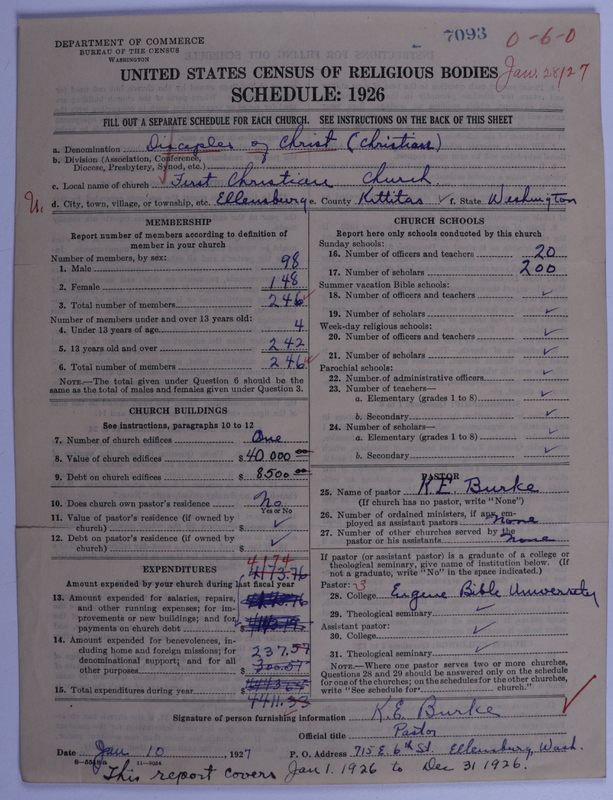 DEPARTMENT OF COMMERCE
BUREAU OF THE CENSUS
WASHINGTON
7093
0-6-0
Jan. 28/27
UNITED STATES CENSUS OF RELIGIOUS BODIES
SCHEDULE: 1926
FILL OUT A SEPARATE SCHEDULE FOR EACH CHURCH. SEE INSTRUCTIONS ON THE BACK OF THIS SHEET
a. Denomination Disciples of Christ (Christian)
b. Division (Association, Conference,
Diocese, Presbytery, Synod, etc.)
c. Local name of church First Christian Church
U. d. City, town, village, or township, etc. Ellensburg e. County Kittitas ✓ f. State Washington
MEMBERSHIP
Report number of members according to definition of
member in your church
Number of members, by sex:
1. Male 98
2. Female 148
3. Total number of members 246
Number of members under and over 13 years old:
4. Under 13 years of age 4
5. 13 years old and over 242
6. Total number of members 246
NOTE.—The total given under Question 6 should be the
same as the total of males and females given under Question 3.
CHURCH BUILDINGS
See instructions, paragraphs 10 to 12
7. Number of church edifices One
8. Value of church edifices $40.000 00
9. Debt on church edifices $8500 00
10. Does church own pastor's residence? No
Yes or No
11. Value of pastor's residence (if owned by
church) $ ✓
12. Debt on pastor's residence (if owned by
church) $ ✓
EXPENDITURES
4174
4173.76
Amount expended by your church during last fiscal year
13. Amount expended for salaries, repairs,
and other running expenses; for im-
provements or new buildings; and for
payments on church debt $
14. Amount expended for benevolences, in-
cluding home and foreign missions; for
denominational support; and for all
other purposes $
237.57
15. Total expenditures during year $
4411.33
CHURCH SCHOOLS
Report here only schools conducted by this church
Sunday schools:
16. Number of officers and teachers 20
17. Number of scholars 200
Summer vacation Bible schools:
18. Number of officers and teachers ✓
19. Number of scholars ✓
Week-day religious schools:
20. Number of officers and teachers ✓
21. Number of scholars ✓
Parochial schools:
22. Number of administrative officers ✓
23. Number of teachers—
a. Elementary (grades 1 to 8) ✓
b. Secondary ✓
24. Number of scholars—
a. Elementary (grades 1 to 8) ✓
b. Secondary ✓
PASTOR
25. Name of pastor K.E. Burke
(If church has no pastor, write "None")
26. Number of ordained ministers, if any, em-
ployed as assistant pastors none
27. Number of other churches served by the
pastor or his assistants none
If pastor (or assistant pastor) is a graduate of a college or
theological seminary, give name of institution below. (If
not a graduate, write "No" in the space indicated.)
Pastor:
28. College Eugene Bible University
29. Theological seminary ✓
Assistant pastor:
30. College ✓
31. Theological seminary ✓
NOTE.—Where one pastor serves two or more churches,
Questions 28 and 29 should be answered only on the schedule
for one of the churches; on the schedules for the other churches,
write "See schedule for church."
Signature of person furnishing information K.E. Burke
Official title Pastor
Date Jan. 10, 1927 P. O. Address 715 E. 6th St. Ellensburg, Wash.
This report covers Jan 1. 1926 to Dec 31 1926.